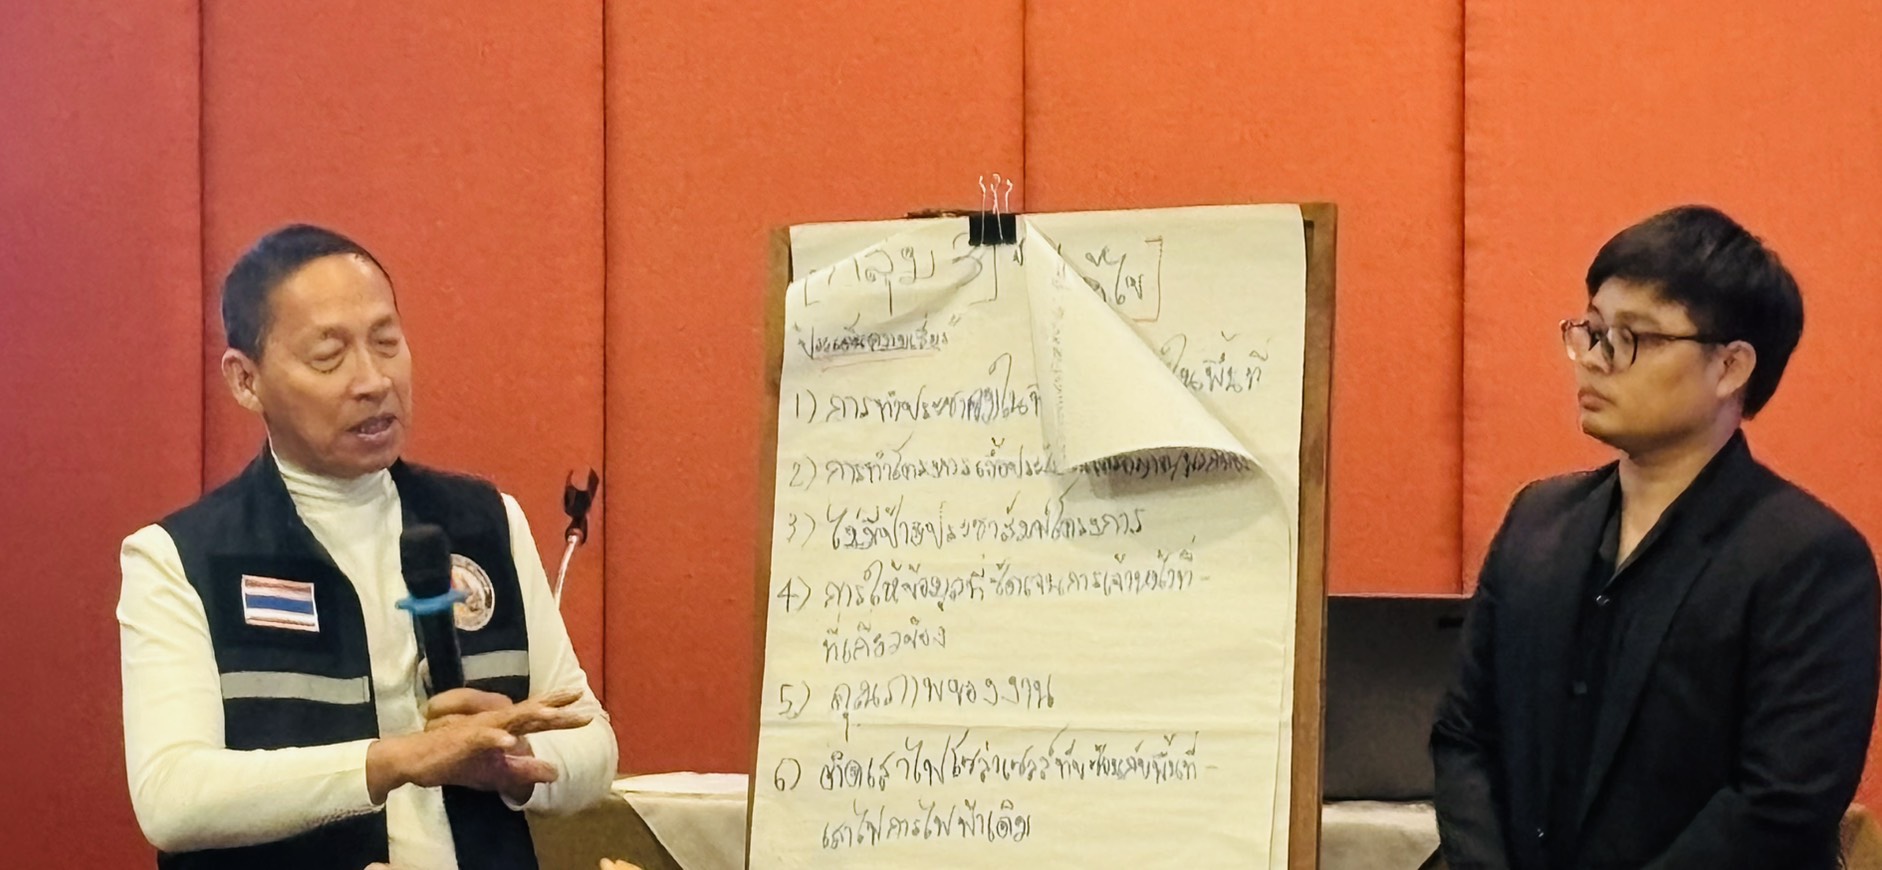 [กลุ่ม 3]
"ประเด็นความเสี่ยง"
1) การทำประชาคมในพื้นที่
2) การทำโครงการเอื้อประ
3) ไม่มีป้ายประชาสัมพันธ์โครงการ
4) การให้ข้อมูลที่ชัดเจนการเจ้าหน้าที่-
ที่เกี่ยวข้อง
5) คุณภาพของงาน
6) ติดเสาไฟโซล่าเซลล์ทับซ้อนกับพื้นที่-
เสาไฟการไฟฟ้าเดิม